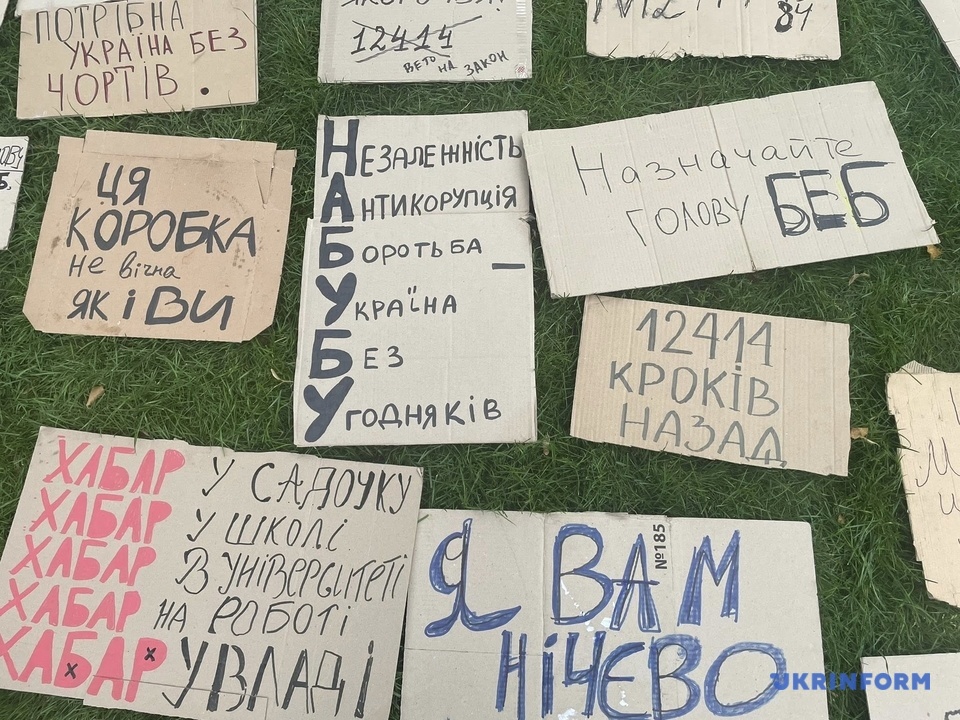 ПОТРІБНА
УКРАЇНА БЕЗ
ЧОРТІВ.
12414
ВЕТО НА ЗАКОН
84
ЦЯ
КОРОБКА
не вічна
ЯК І ВИ
НЕЗАЛЕЖНІСТЬ
АНТИКОРУПЦІЯ
БОРОТЬБА _
УКРАЇНА
БЕЗ
УГОДНЯКІВ
Назначайте
ГОЛОВУ БЕБ
12414
КРОКІВ
НАЗАД
ХАБАР У САДОЧКУ
ХАБАР У ШКОЛІ
ХАБАР В УНІВЕРСИТЕТІ
ХАБАР НА РОБОТІ
ХАБАР У ВЛАДІ
Я ВАМ
НІЧЄВО
№185
UKRINFORM